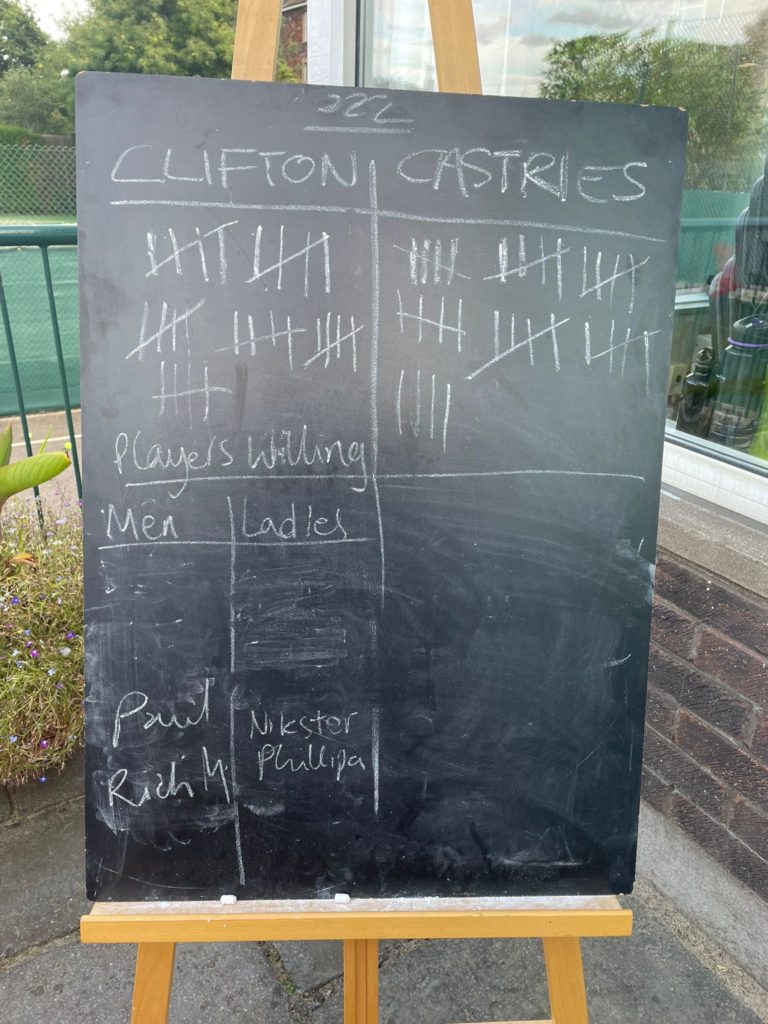 CLIFTON CASTRIES
Players Willing
Men Ladies
Paul Nikster
Rich M. Phillipa